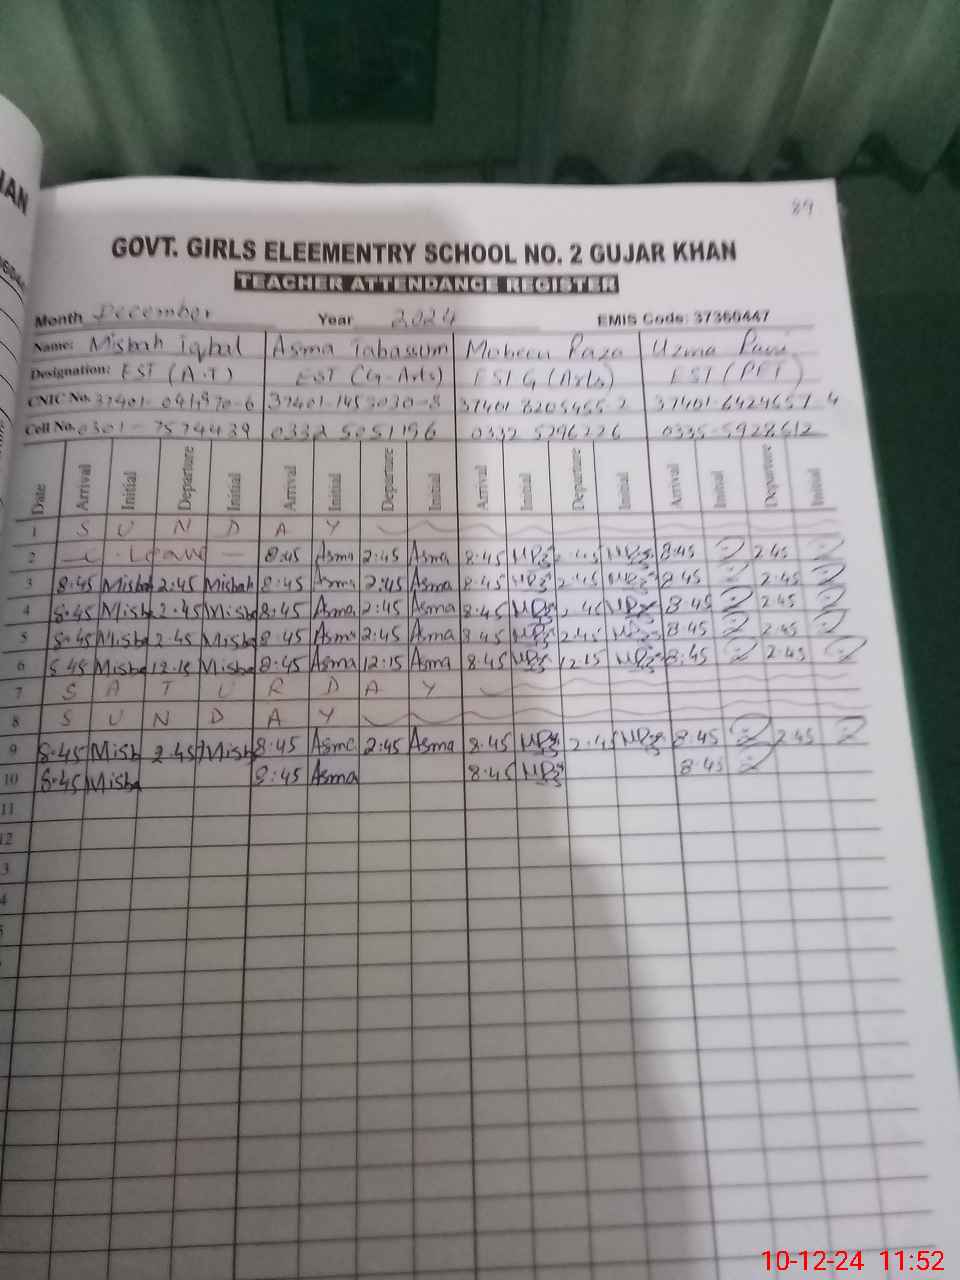 89
GOVT. GIRLS ELEEMENTRY SCHOOL NO. 2 GUJAR KHAN
TEACHER ATTENDANCE REGISTER
Month December Year 2024 EMIS Code: 37360447
Name: Misbah iqbal Asma Tabassum Mobeen Raza Uzma
Designation: EST (A.T) EST (G-Arts) EST G (Arts) EST (PET)
CNIC No.
Cell No. 0301-7574439 0332 5051196 0332 5296226 0335-5928612
Date Arrival Initial Departure Initial Arrival Initial Departure Initial Arrival Initial Departure Initial Arrival Initial Departure Initial
1 S U N D A Y
2 Leave 8:45 Asma 2:45 Asma 8:45 2:45 8:45 2:45
3 8:45 Misbah 2:45 Misbah 8:45 Asma 2:45 Asma 8:45 2:45 8:45 2:45
4 8:45 Misba 2:45 Misba 8:45 Asma 2:45 Asma 8:45 2:45 8:45 2:45
5 8:45 Misba 2:45 Misba 8:45 Asma 2:45 Asma 8:45 2:45 8:45 2:45
6 8:45 Misba 12:15 Misba 8:45 Asma 12:15 Asma 8:45 12:15 8:45 2:45
7 S A T U R D A Y
8 S U N D A Y
9 8:45 Misb 2:45 Misb 8:45 Asma 2:45 Asma 8:45 2:45 8:45 2:45
10 8:45 Misba 8:45 Asma 8:45 8:45
11
12
3
4
10-12-24 11:52